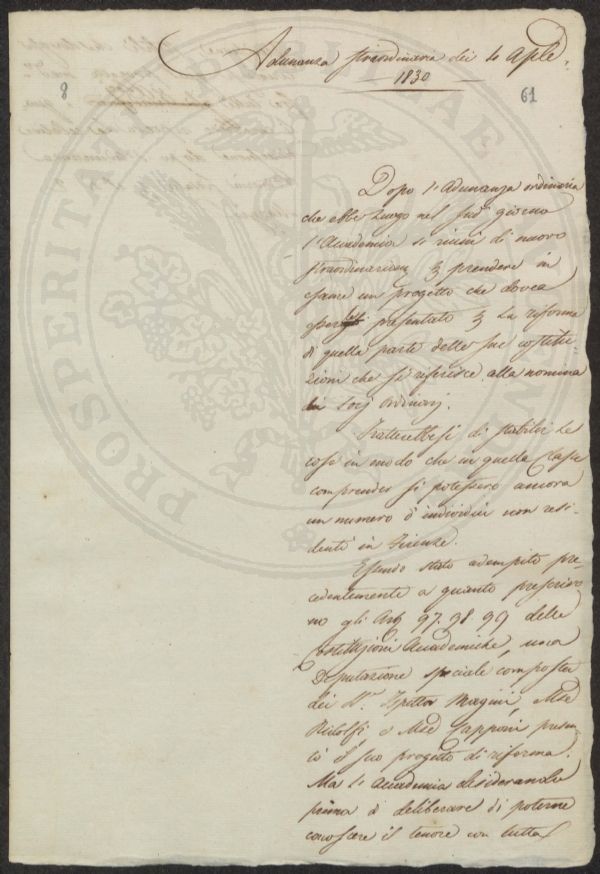 Adunanza straordinaria dei 4 Aple
1830
8
61
Dopo l'Adunanza ordinaria
che ebbe luogo nel sud° giorno
l'Accademia si riunì di nuovo
straordinariam per prendere in
esame un progetto che dovea
esserle presentato per la riforma
di quella parte delle sue costitu-
zioni che si riferisce alla nomina
dei Socj Ordinarj.
Tratterebbesi di stabilir le
cose in modo che in quella Classe
comprender si potessero ancora
un numero d'individui non resi-
denti in Firenze.
Essendo stato adempito pre-
cedentemente a quanto prescrivo-
no gli Art 97. 98. 99 delle
Costituzioni Accademiche, una
Deputazione speciale composta
dei Magini, Mse
Ridolfi, e Mse Capponi presen-
tò il suo progetto di riforma.
Ma l'Accademia desiderando
prima di deliberare di poterne
conoscere il tenore con tutta
PROSPERITATI PUBLICAE